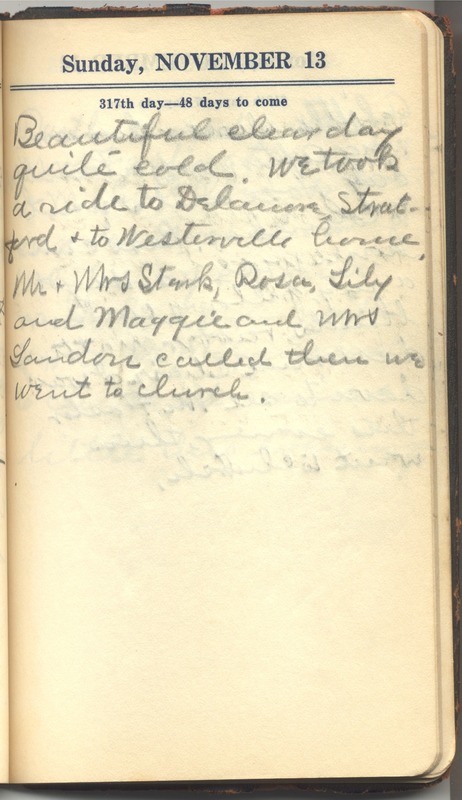 Sunday, NOVEMBER 13
317th day—48 days to come
Beautiful clear day
quite cold. We took
a ride to Delaware, Strat-
ford & to Westerville home.
Mr & Mrs Stark, Rosa, Lily
and Maggie and Mrs
Landon called then we
went to church.